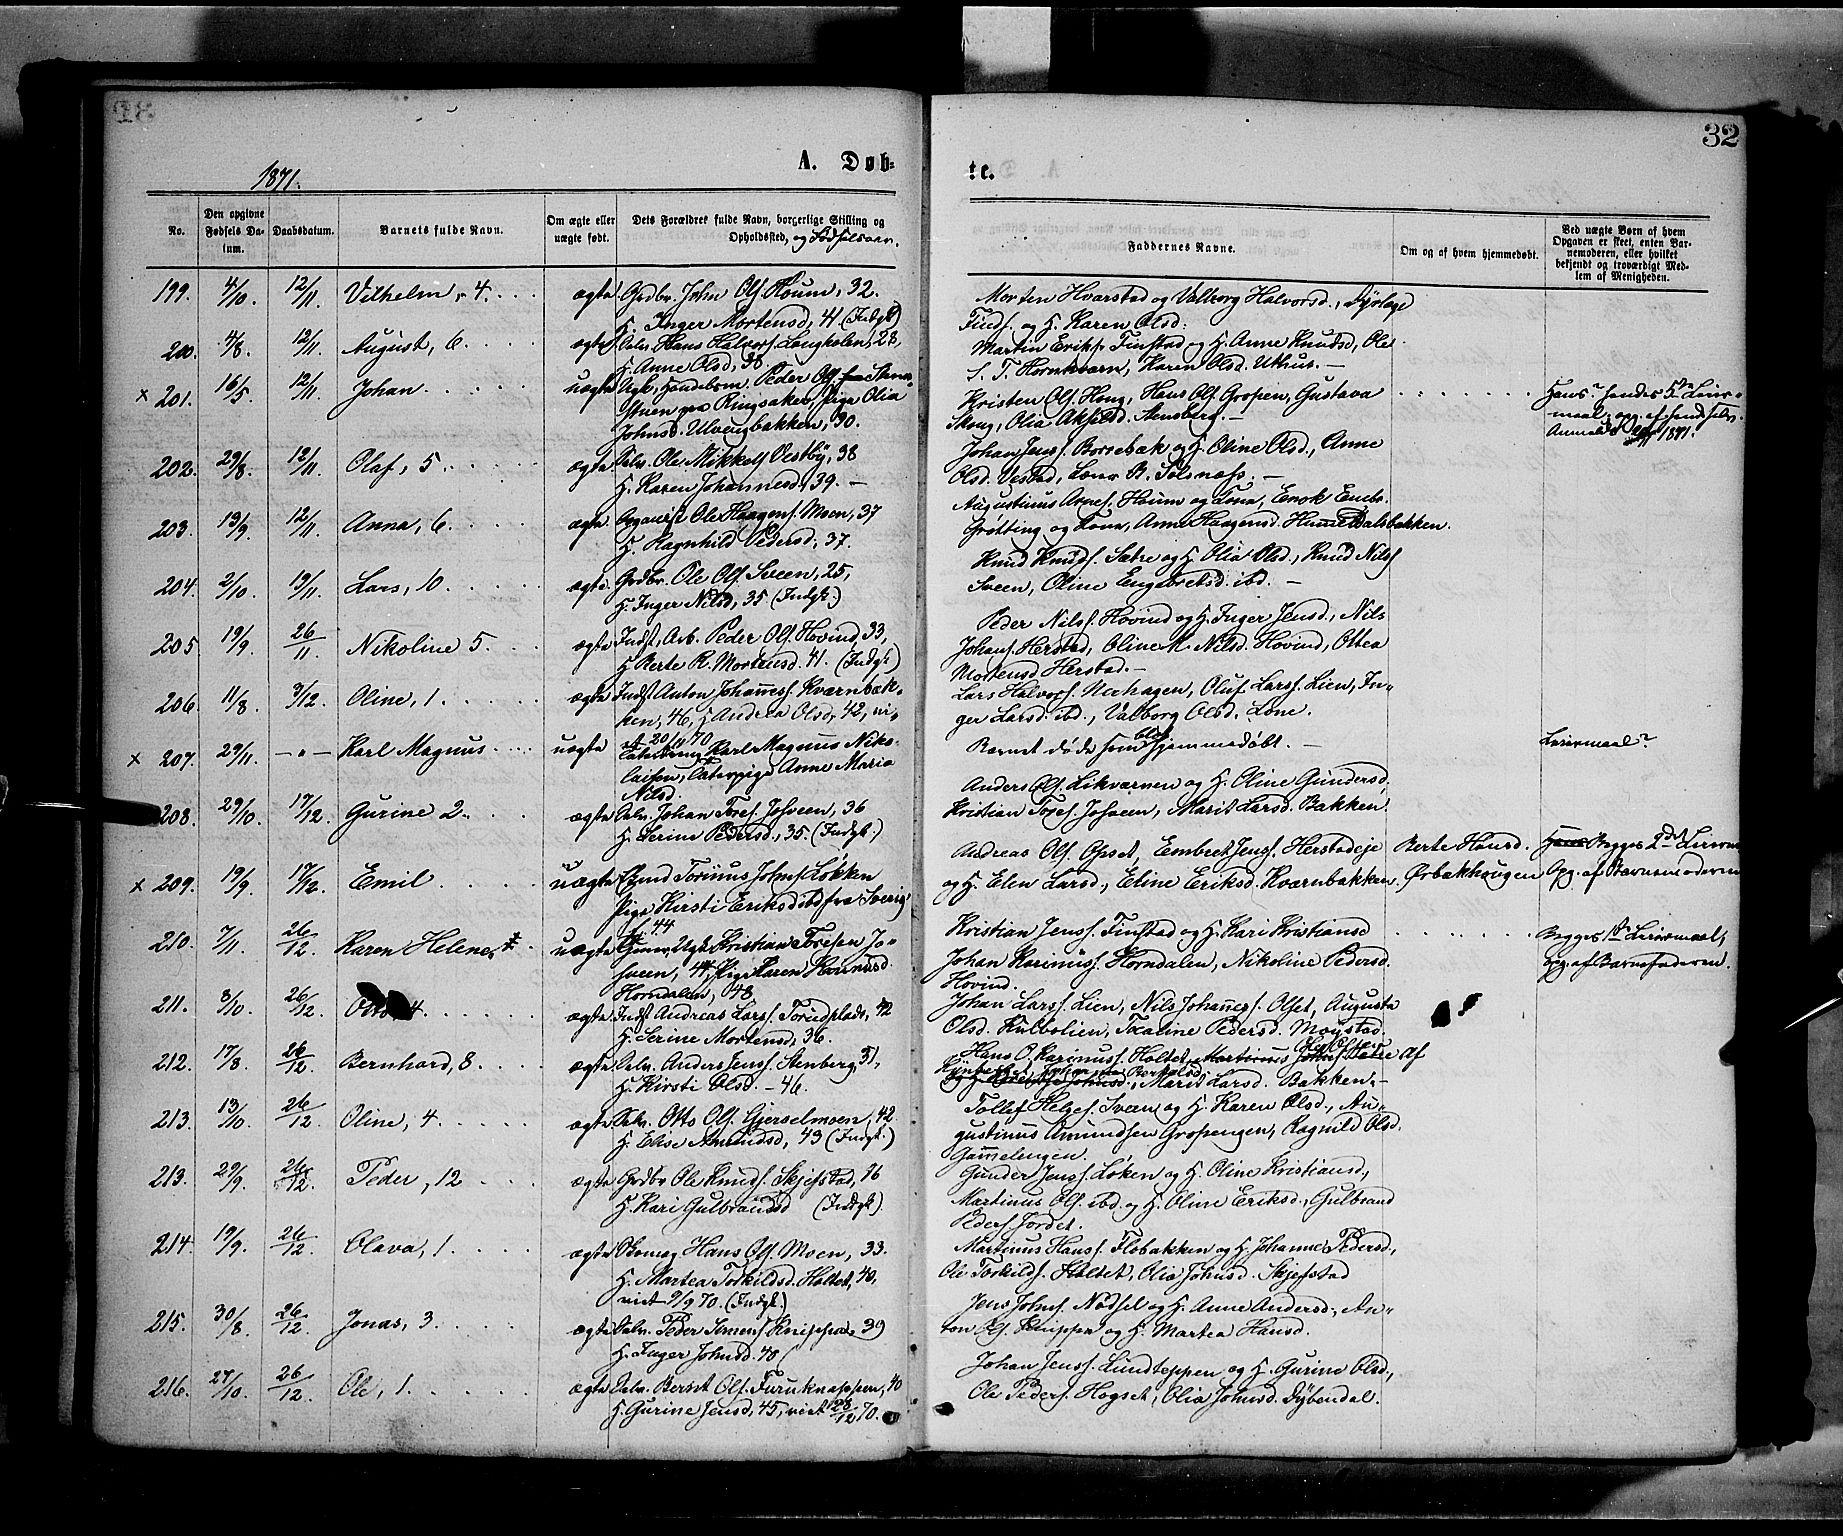 32
1871.
A. Døb=
te.
No.
Den opgivne Fødsels Da-tum.
Daabsdatum.
Barnets fulde Navn.
Om ægte eller uægte født.
Dets Forældres fulde Navn, borgerlige Stilling og Opholdssted, og Fødselsaar.
Faddernes Navne.
Om og af hvem hjemmedøbt.
Ved uægte Børn af hvem Opgaven er skeet, enten Bar-nemoderen, eller hvilket bekjendt og troværdigt Med-lem af Menigheden.
199. 4/10. 12/11. Vilhelm, 4. ægte Grdbr. John Ols. Houm, 32.
H. Inger Mortensd, 41 (Indgt.)
Morten Hvarstad og Valborg Halvorsd.,
Finds. og H. Karen Olsd.
200. 4/8. 12/11. August, 6. ægte Selv. Hans Halvors. Langholen, 28,
H. Anne Olsd, 38.
Martin Eriks. Finstad og H. Anne Knudsd, Ole
S. T. Hornkværn, Karen Olsd. Uthus. —
× 201. 16/5. 12/11. Johan uægte Ugk. Peder Ols.
stuen paa Ringsaker, Pige Olia
Johnsd. Ulvengbakken, 30.
Kristen Ols. Hong, Hans Ols. Gropen, Gustava
Skoug, Olia Aksild. Arnsberg. —
Hans? hendes 5te Leier-
maal; opg. af hende selv.
1871.
202. 29/8. 12/11. Olaf, 5. ægte Selv. Ole Mikkels. Vestby, 38
H. Karen Johannesd, 39. —
Johan Jens. Borrebak og H. Oline Olsd., Anne
Olsd. Vestad, R. Tolsnæss. —
203. 19/9. 12/11. Anna, 6. ægte Ole Haagens. Moen, 37
H. Ragnhild Pedersd, 37.
Augustinus Arnes. Houm og Kona, Enok Embr.
Grøtting og Kona, Anne Haagensd. Hummeldalsbakken.
204. 2/10. 19/11. Lars, 10. ægte Grdbr. Ole Ols. Sveen, 25,
H. Inger Nilsd, 35 (Indgt.)
Knud Knuds. Sætre og H. Olia Olsd., Knud Nils
Sveen, Oline Engebretsd. ibd. —
205. 19/9. 26/11. Nikoline 5. ægte Indst. Arb. Peder Ols. Hovind, 33,
H. Berte R. Mortensd. 41. (Indgt.)
Peder Nilss. Hovind og H. Inger Jensd., Nils
Johans. Herstad, Oline M. Nilsd. Hovind, Ottea
Mortensd Herstad. —
206. 11/8. 3/12. Oline, 1. ægte Indst Anton Johanness. Kværnbæk-
ken, 46, H. Andrea Olsd, 42, vi-
et 20/11 70
Lars Halvors. Nerhagen, Oluf Larss. Lien, In-
ger Larsd. ibd., Valborg Olsd. Lone.
× 207. 29/11. — " — Karl Magnus uægte Taterdreng Karl Magnus Niko-
laisen, Taterpige Anne Maria
Nilsd.
Barnet døde som blev hjemmedøbt. —
Leiermaal?
208. 29/10. 17/12. Gurine 2. ægte Selv. Johan Tores. Josveen, 36
H. Serine Pedersd., 35. (Indgt.)
Anders Ols. Likværnen og H. Oline Gundersd,
Kristian Tores. Josveen, Marit Larsd. Bakken.
× 209. 19/9. 17/12. Emil uægte Torinus Johns. Løkken
Pige Kirsti Eriksd ibd fra Sverig
Andreas Ols. Opset, Embret Jens. Herstadeje
og H. Elen Larsd., Eline Eriksd. Kværnbakken.
Berte Hansd.
Ørbakhaugen
Begges 2det Leierm
Opg. af Barnemoderen
210. 7/11. 26/12. Karen Helene uægte Ugk. Kristian Torisen Jo-
sveen, 44, Pige Karen
Horndalen, 48.
Kristian Jenss. Finstad og H. Kari Kristiansd
Johan Karinuss. Horndalen, Nikoline Pedersd.
Hovind.
Begges 1ste Leiermaal,
opg. af Barnefaderen.
211. 8/10. 26/12. 4. ægte Indst Andreas Larss. Torudplads, 42
H. Serine Mortensd, 36.
Johan Larss. Lien, Nils Johanness. Olset, Augusta
Olsd. Kulbolien, Pedersd. Moystad.
212. 17/8. 26/12. Bernhard, 8. ægte Selv. Anders Jenss. Stenberg 31,
H. Kirsti Olsd. — 46.
Hans O. Karinuss. Holtet,
Marit Larsd. Bakken. —
213. 13/10. 26/12. Oline, 4. ægte Selv. Otto Ols. Gjerselmoen, 42.
H. Elise Amundsd, 43 (Indgt.)
Tollef Helges. Sveen og H. Karen Olsd., Au-
gustinus Amundsen Gropengen, Ragnild Olsd.
Gammelengen.
213. 29/9. 26/12. Peder, 12 ægte Grdbr Ole Knuds. Skjefstad, 16
H. Kari Gulbrandsd (Indgt.)
Gunder Jenss. Løken og H. Oline Kristiansd.,
Martinus Ols. ibd. og H. Oline Eriksd., Gulbrand
Peders. Jordet.
214. 19/9. 26/12. Olava, 1. ægte Skomag Hans Ols. Moen, 33.
H. Martea Torkildsd. Holtet, 40,
viet 9/9 70. (Indgt.)
Martinus Hanss. Flobakken og H. Johanne Pedersd.,
Ole Torkilds. Holtet, Olia Johnsd. Skjefstad
215. 30/8. 26/12. Jonas, 3. ægte Selv. Peder Simens. Knippen, 39
H. Inger Johnsd. 40
Jens Johns. Nødsel og H. Anne Andersd., An-
ton Ols. Knippen og H. Martea Hansd.
216. 27/10. 26/12. Ole, 1. ægte Selv. Bernt Ols. Furuknappen, 40
H. Gurine Jensd, 45, viet 28/12 70.
Johan Jenss. Lundteppen og H. Gurine Olsd.,
Ole Peders. Hogset, Olia Johnsd. Dybendal.